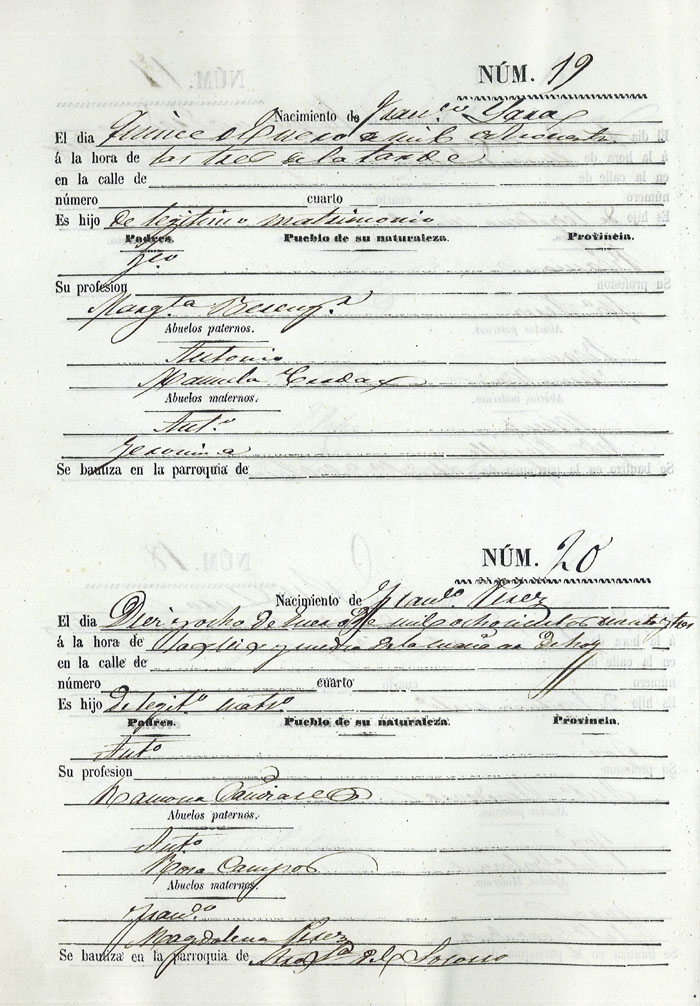 NÚM. 19
Nacimiento de Fran.co
El dia Quince de Enero de mil
á la hora de las tres de la tarde
en la calle de
número cuarto
Es hijo de legitimo matrimonio
Padres. Pueblo de su naturaleza. Provincia.
Fco
Su profesion
Marg.ta Bereng.r
Abuelos paternos.
Antonio
Manuela
Abuelos maternos.
Ant.o
Geronima
Se bautiza en la parroquia de
NÚM. 20
Nacimiento de Fran.co Perez
El dia Diez y ocho de Enero de mil ochocientos
á la hora de las seis y media de la mañana de hoy
en la calle de
número cuarto
Es hijo de legit.o matr.o
Padres. Pueblo de su naturaleza. Provincia.
Ant.o
Su profesion
Ramona
Abuelos paternos.
Ant.o
Rosa Campos
Abuelos maternos.
Fran.co
Magdalena Perez
Se bautiza en la parroquia de Ntra Sra del Socorro